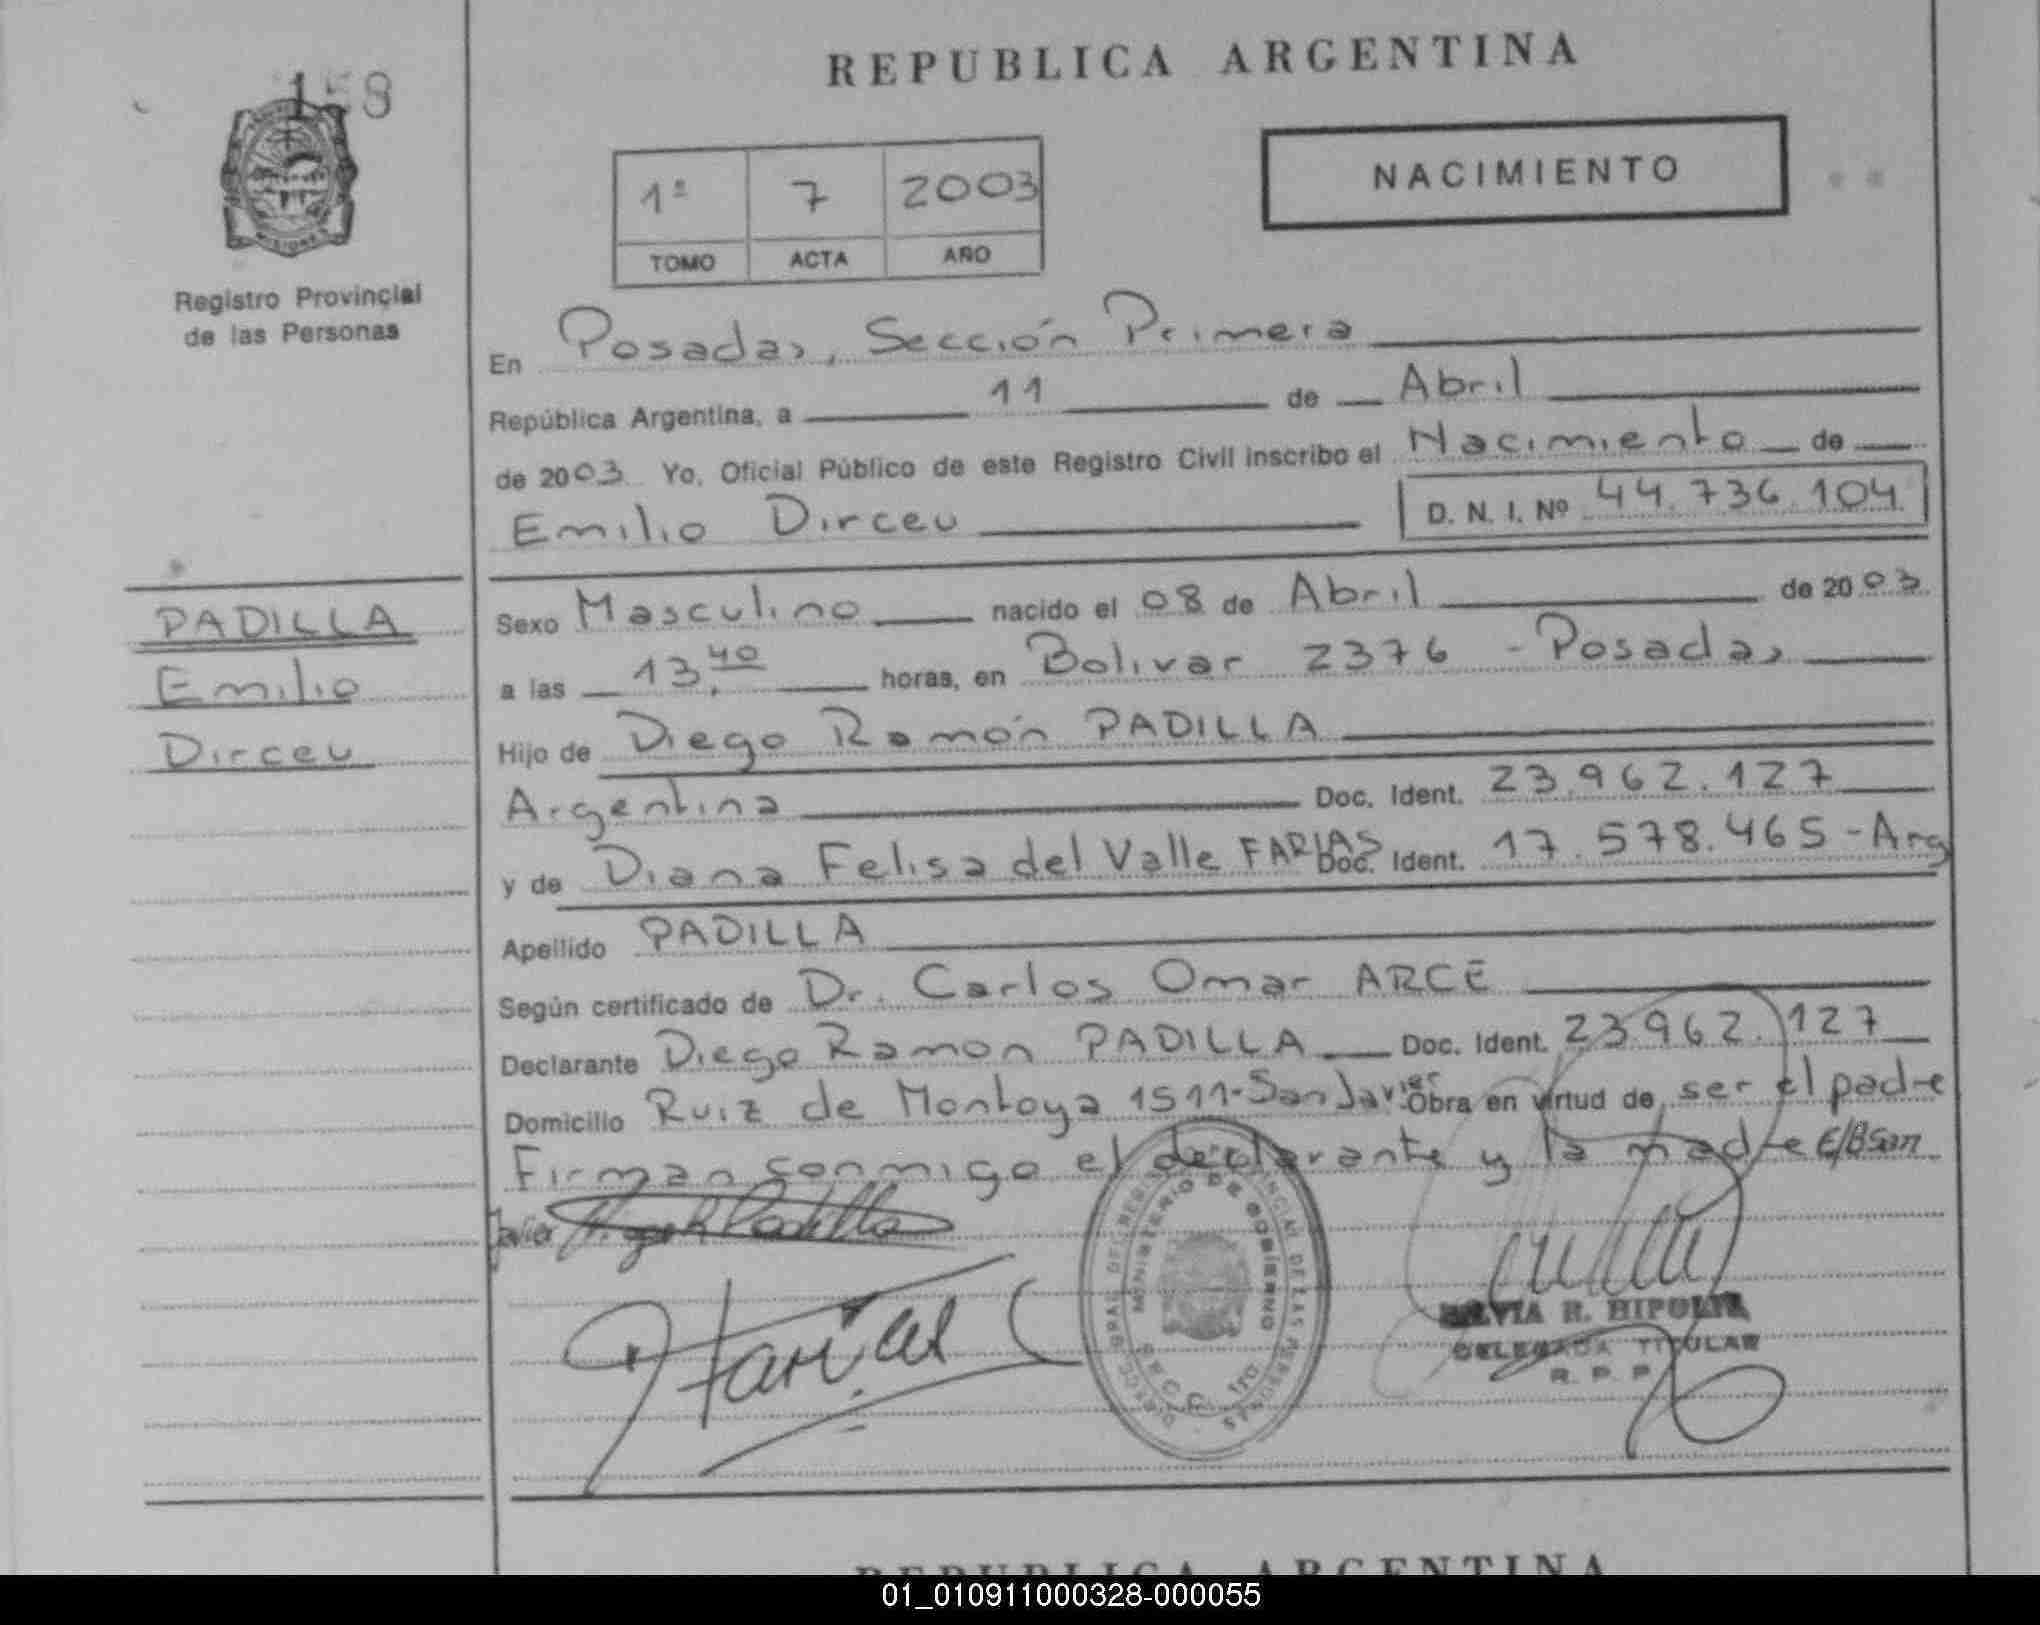 REPUBLICA ARGENTINA
MISIONES
Registro Provincial
de las Personas
1º 7 2003
TOMO ACTA AÑO
NACIMIENTO
En Posadas, Sección Primera
República Argentina, a 11 de Abril
de 2003 Yo, Oficial Público de este Registro Civil inscribo el Nacimiento de
Emilio Dirceu D. N. I. Nº 44.736.104
PADILLA
Emilio
Dirceu
Sexo Masculino nacido el 08 de Abril de 2003
a las 13,40 horas, en Bolivar 2376 - Posadas
Hijo de Diego Ramón PADILLA
Argentina Doc. Ident. 23.962.127
y de Diana Felisa del Valle FARIAS Doc. Ident. 17.578.465 - Arg
Apellido PADILLA
Según certificado de Dr. Carlos Omar ARCE
Declarante Diego Ramon PADILLA Doc. Ident. 23.962.127
Domicilio Ruiz de Montoya 1511-San Javier Obra en virtud de ser el padre
Firman conmigo el declarante y la madre E/B San
Javier
MINISTERIO DE GOBIERNO
SILVIA R. HIPOLITO
DELEGADA TITULAR
R. P. P.
REPUBLICA ARGENTINA
01_010911000328-000055